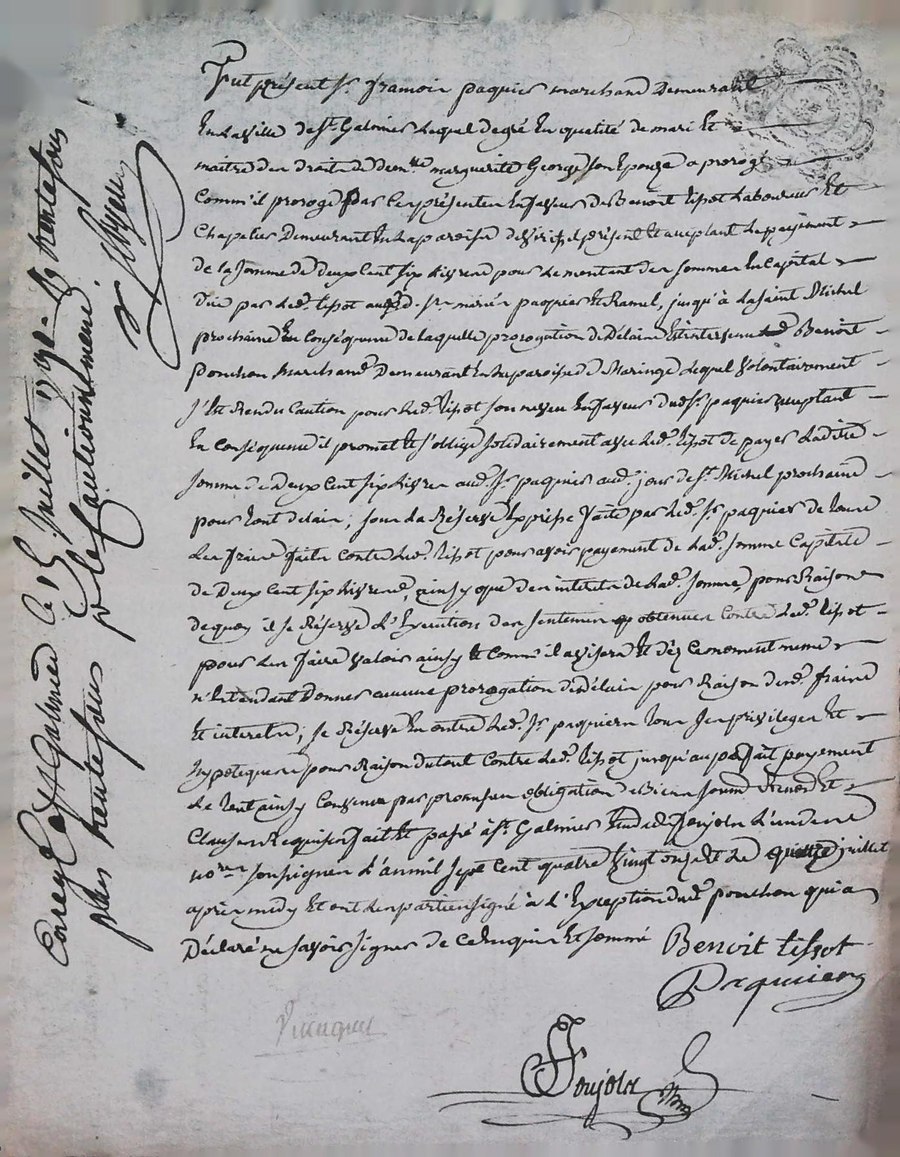 Fut présent Sr. francois paquier marchand Demeurant
En la ville de St. Galmier Lequel degré En qualité de mari Et
maitre des droits de dem.lle marguerite George son Epouze a prorogé
comm'il proroge par Ces présentes En faveur de Benoit tissot Laboureur Et
Chapelier Demeurant En La paroisse de présent Et acceptant Le payement
de la somme de deux Cent six Livres pour Le montant des sommes En Capital
düe par Led. tissot aud. Sr. paquier Et Ramel, jusqu'à La saint Michel
prochaine En Conséquence de laquelle prorogation de Délais Est intervenu Benoit
ponchon Marchand Demeurant En La paroisse de Maringe Lequel Volontairement
s'Est Rendu Caution pour Led. tissot son neveu En faveur dud. Sr. paquier acceptant
En Conséquence il promet Et s'oblige solidairement avec Led. tissot de payer Ladite
somme de Deux Cent six Livres aud. Sr. paquier aud. jour de St. Michel prochaine
pour tout delais; sous La Réserve Expresse faite par Led. Sr. paquier de tous
Les fraix faits Contre Led. tissot pour avoir payement de Lad. somme Capitale
de Deux Cent six Livres, ainsy que des interets de Lad. somme, pour Raison
de quoy il se Réserve L'Execution des sentences obtenues Contre Led. tissot
pour Les faire Valoir ainsy Et Comm'il avisera Et dèz Ce moment meme
n'Entendant Donner aucune prorogation de délais pour Raison desd. fraix
Et interets; se Réserve En outre Led. Sr. paquier tous ses privileges Et
hypoteques pour Raison du tout Contre Led. tissot jusqu'au parfait payement
Le tout ainsy Convenu par promesses obligation de Biens soumis Renon Et
Clauses Requises fait Et passé à St. Galmier Etude de Soujols L'un des
no.res soussignés L'an mil sept Cent quatre vingt onze Et Le quinze juillet
après midy Et ont Les parties signé à L'Exception dud. ponchon qui a
Déclaré ne savoir signer de Ce Enquis Et sommé Benoit tissot
Paquier
Soujols
Nre
Enreg. à St Galmier le 15 Juillet 1791 trente sous
plus trente sous pr le Cautionnement.